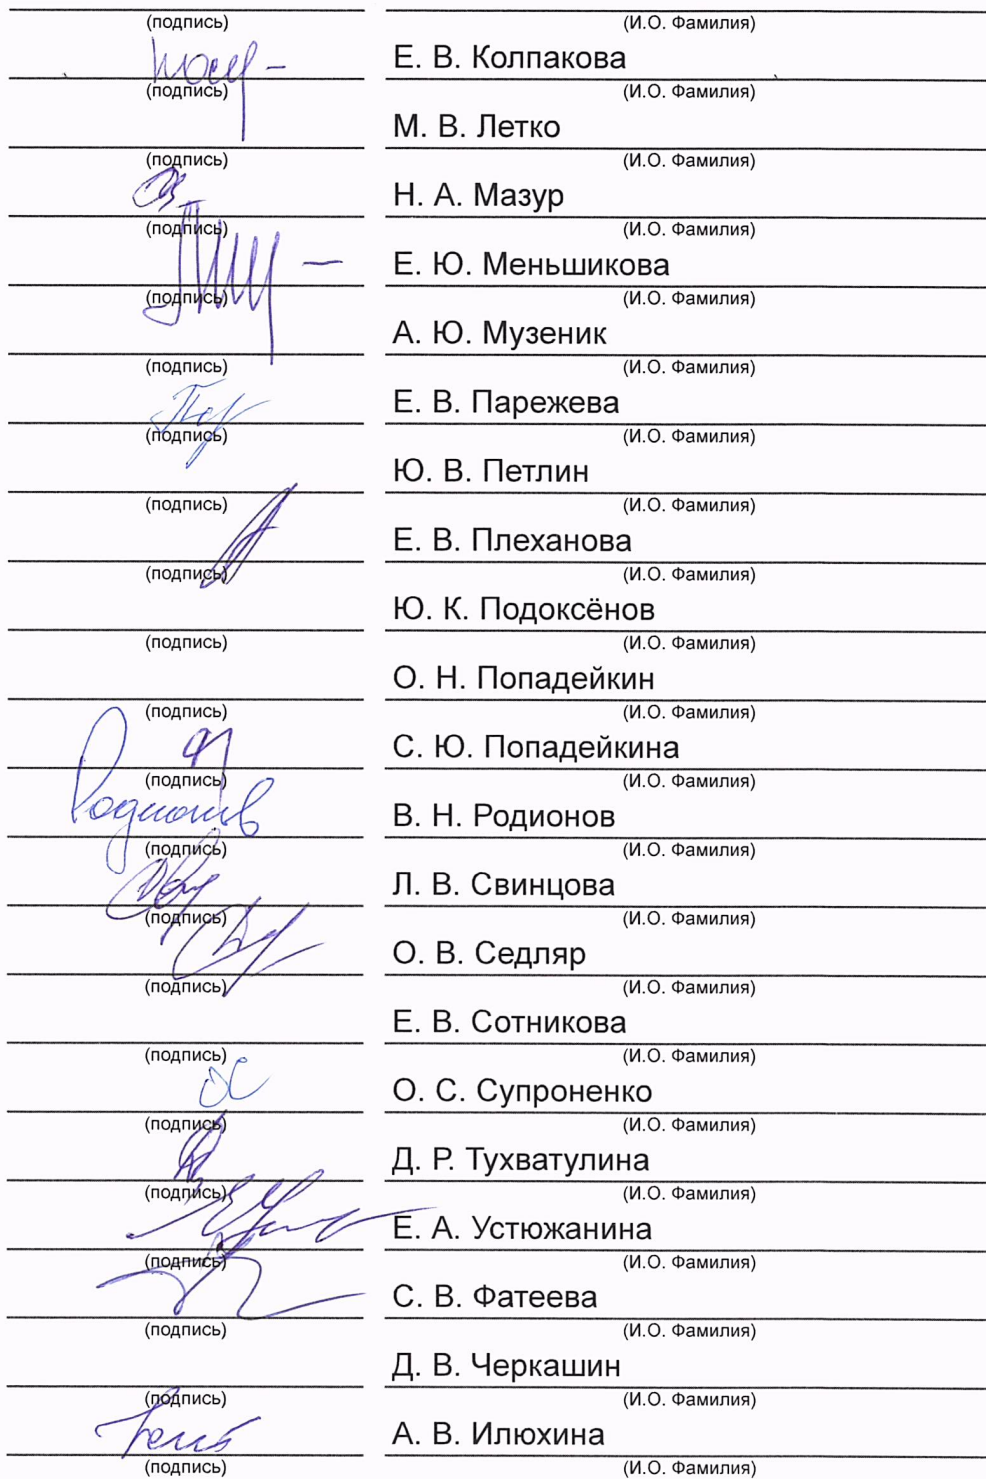 (подпись) (И.О. Фамилия)
Е. В. Колпакова
(подпись) (И.О. Фамилия)
М. В. Летко
(подпись) (И.О. Фамилия)
Н. А. Мазур
(подпись) (И.О. Фамилия)
Е. Ю. Меньшикова
(подпись) (И.О. Фамилия)
А. Ю. Музеник
(подпись) (И.О. Фамилия)
Е. В. Парежева
(подпись) (И.О. Фамилия)
Ю. В. Петлин
(подпись) (И.О. Фамилия)
Е. В. Плеханова
(подпись) (И.О. Фамилия)
Ю. К. Подоксёнов
(подпись) (И.О. Фамилия)
О. Н. Попадейкин
(подпись) (И.О. Фамилия)
С. Ю. Попадейкина
(подпись) (И.О. Фамилия)
В. Н. Родионов
(подпись) (И.О. Фамилия)
Л. В. Свинцова
(подпись) (И.О. Фамилия)
О. В. Седляр
(подпись) (И.О. Фамилия)
Е. В. Сотникова
(подпись) (И.О. Фамилия)
О. С. Супроненко
(подпись) (И.О. Фамилия)
Д. Р. Тухватулина
(подпись) (И.О. Фамилия)
Е. А. Устюжанина
(подпись) (И.О. Фамилия)
С. В. Фатеева
(подпись) (И.О. Фамилия)
Д. В. Черкашин
(подпись) (И.О. Фамилия)
А. В. Илюхина
(подпись) (И.О. Фамилия)